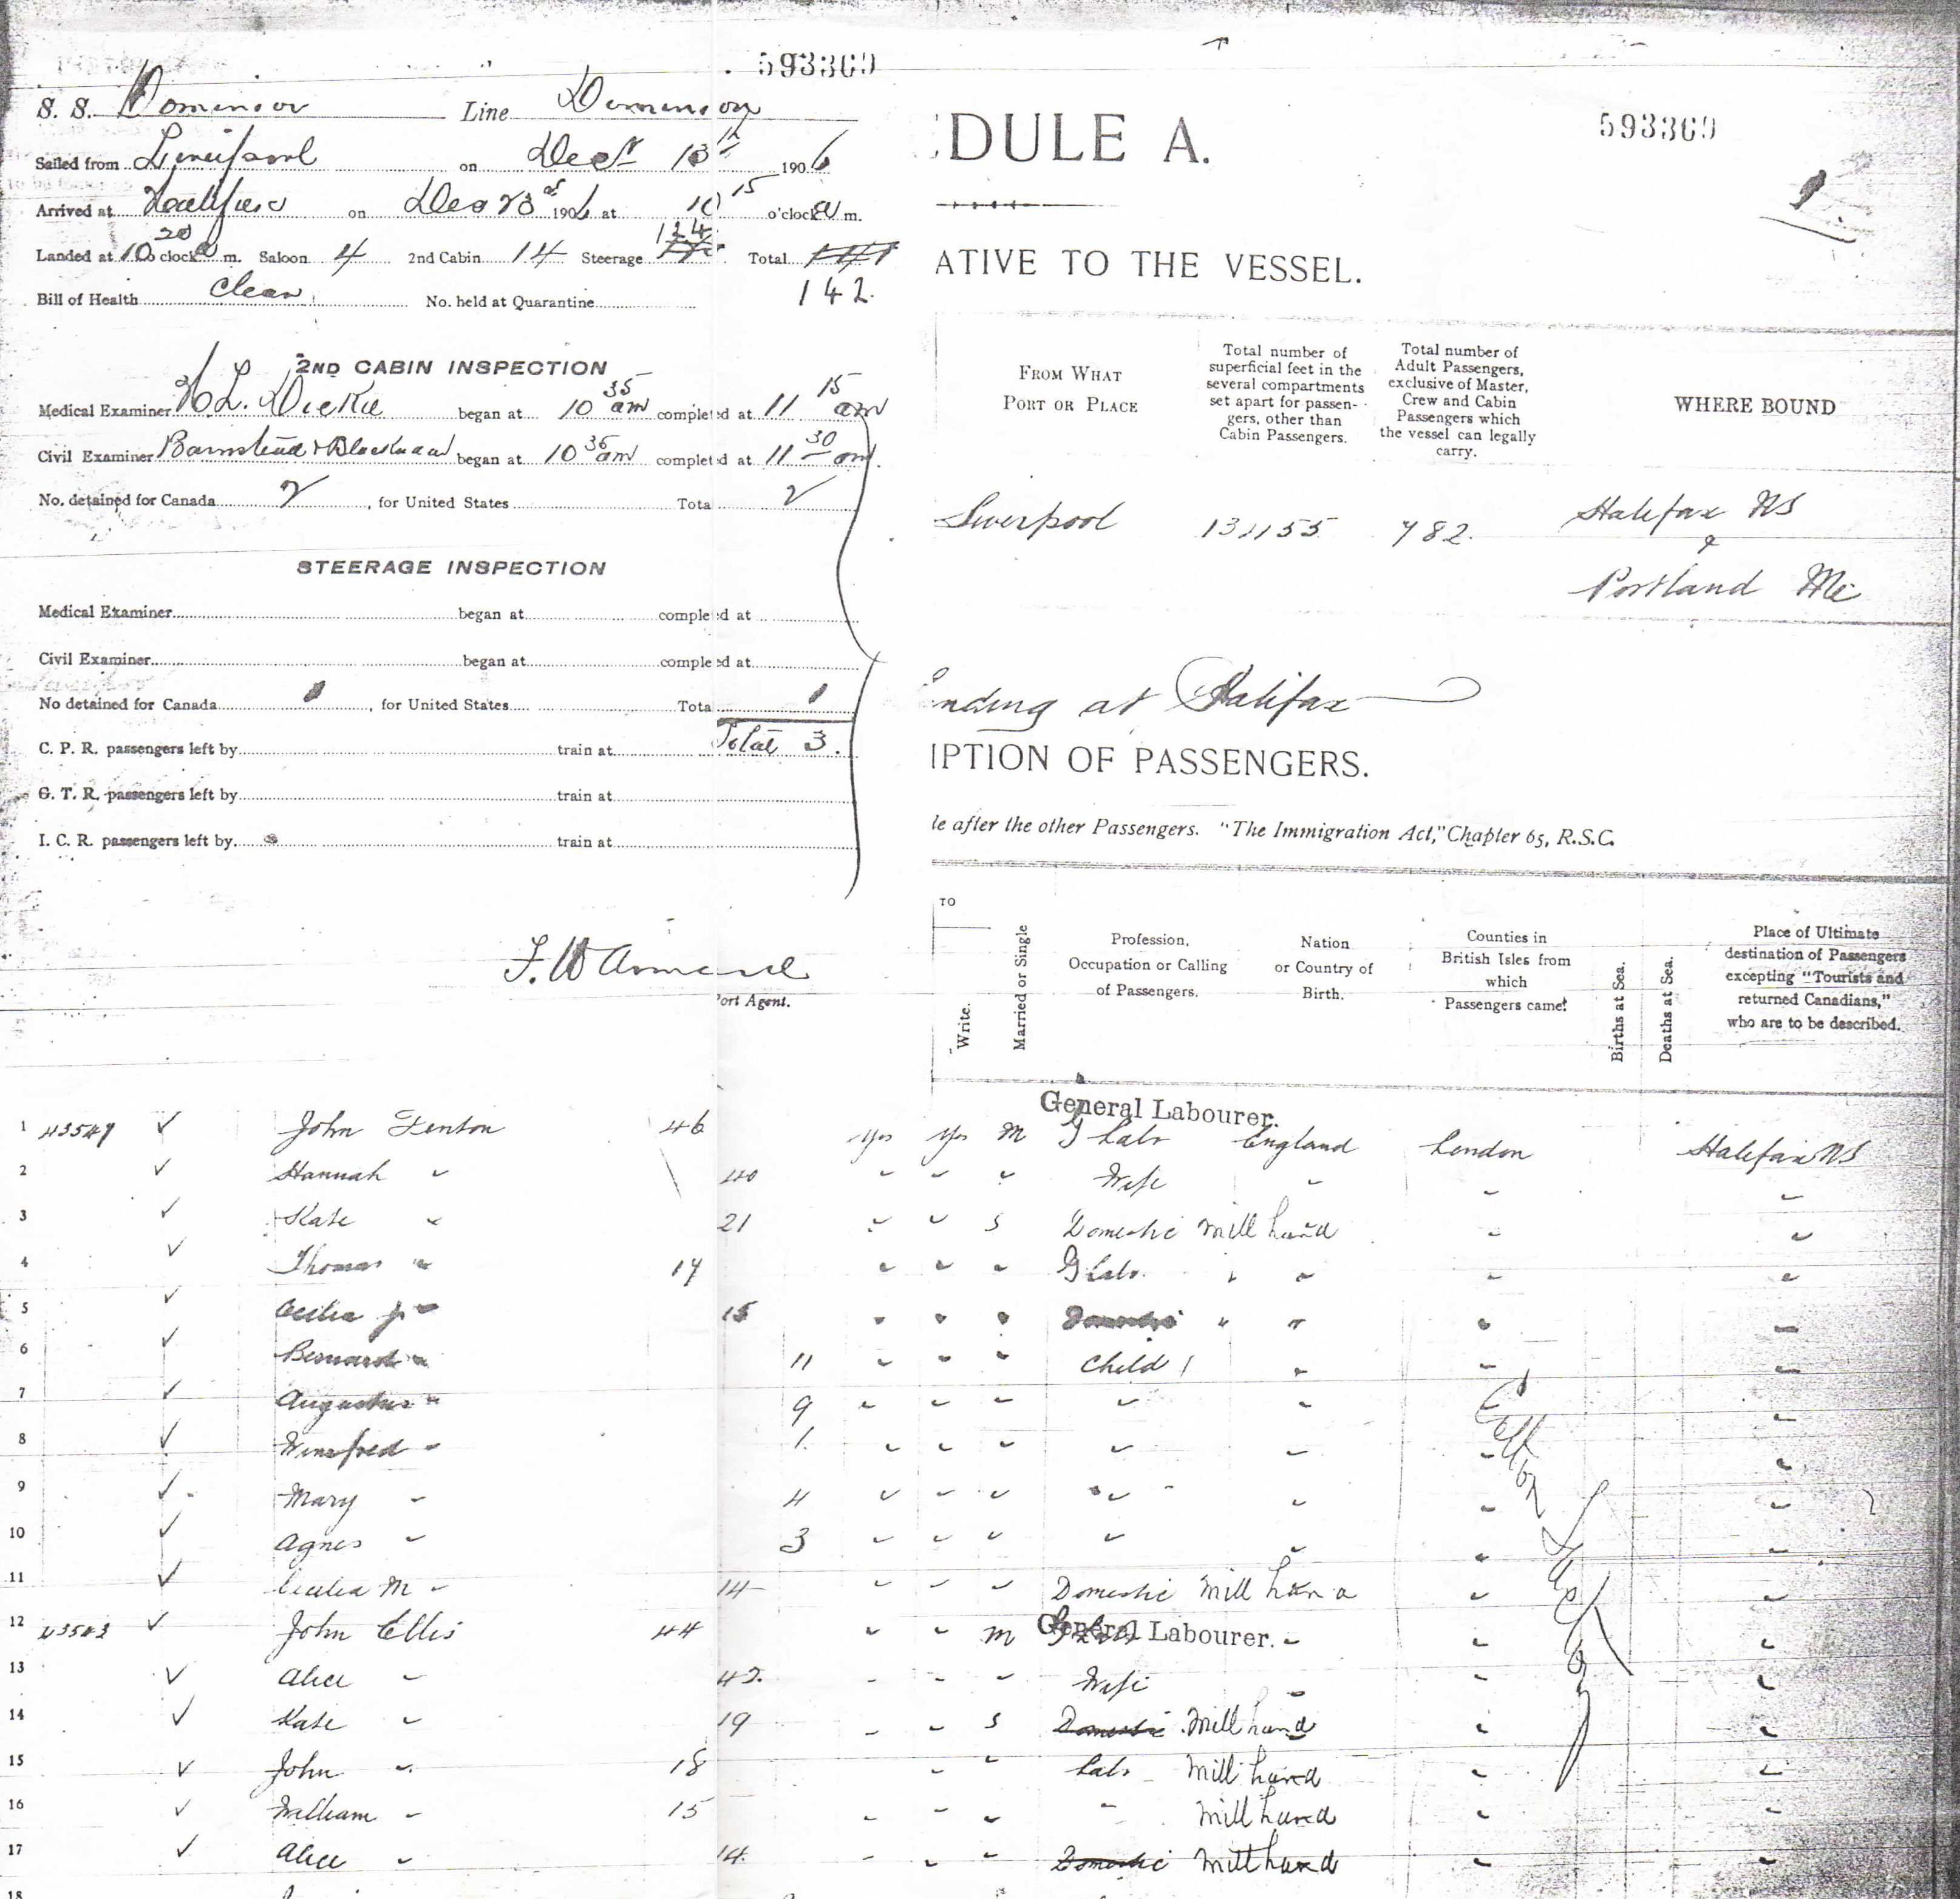 593369
S. S. Dominion Line Dominion
Sailed from Liverpool on Decr 13th 1906
Arrived at Halifax on Dec 23rd 1906 at 10 15 o'clock a m.
Landed at 10 20 o'clock a m. Saloon 4 2nd Cabin 14 Steerage 124 Total
Bill of Health Clean No. held at Quarantine 142.
2ND CABIN INSPECTION
Medical Examiner L. Dickie began at 10 35 am completed at 11 15 am
Civil Examiner Barnstead + Blackadar began at 10 35 am completed at 11 30 am.
No. detained for Canada 2, for United States Tota 2
STEERAGE INSPECTION
Medical Examiner began at comple ed at
Civil Examiner began at comple ed at
No detained for Canada 1, for United States Tota 1
C. P. R. passengers left by train at Total 3.
G. T. R. passengers left by train at
I. C. R. passengers left by train at
F. W. Annand
Port Agent.
593369
DULE A.
1
ATIVE TO THE VESSEL.
FROM WHAT PORT OR PLACE
Total number of superficial feet in the several compartments set apart for passengers, other than Cabin Passengers.
Total number of Adult Passengers, exclusive of Master, Crew and Cabin Passengers which the vessel can legally carry.
WHERE BOUND
Liverpool 13,155 782. Halifax NS
&
Portland Me
nding at Halifax
IPTION OF PASSENGERS.
le after the other Passengers. "The Immigration Act," Chapter 65, R.S.C.
TO
Write.
Married or Single
Profession, Occupation or Calling of Passengers.
Nation or Country of Birth.
Counties in British Isles from which Passengers came.
Births at Sea.
Deaths at Sea.
Place of Ultimate destination of Passengers excepting "Tourists and returned Canadians," who are to be described.
General Labourer.
1 43549 ✓ John Fenton 46 Yes Yes M G Labr England London Halifax NS
2 ✓ Hannah " 40 " " " Wife " " "
3 ✓ Kate " 21 " " S Domestic Mill hand " "
4 ✓ Thomas " 17 " " " G Labr. " " " "
5 ✓ Cecilia J " 15 " " " Domestic " " " "
6 ✓ Bernard " 11 " " " Child " " "
7 ✓ Augustus " 9 " " " " " " "
8 ✓ Winifred " 1 " " " " " " "
9 ✓ Mary " 4 " " " " " " "
10 ✓ Agnes " 3 " " " " " " "
11 ✓ Cecilia M " 14 " " " Domestic Mill hand " "
12 ✓ John Ellis 44 " " M General Labourer. " " "
13 ✓ Alice " 42. " " " Wife " " "
14 ✓ Kate " 19 " " S Domestic Mill hand " "
15 ✓ John " 18 " " Labr Mill hand " "
16 ✓ William " 15 " " " " Mill hand " "
17 ✓ Alice " 14. " " " Domestic Mill hand " "
18